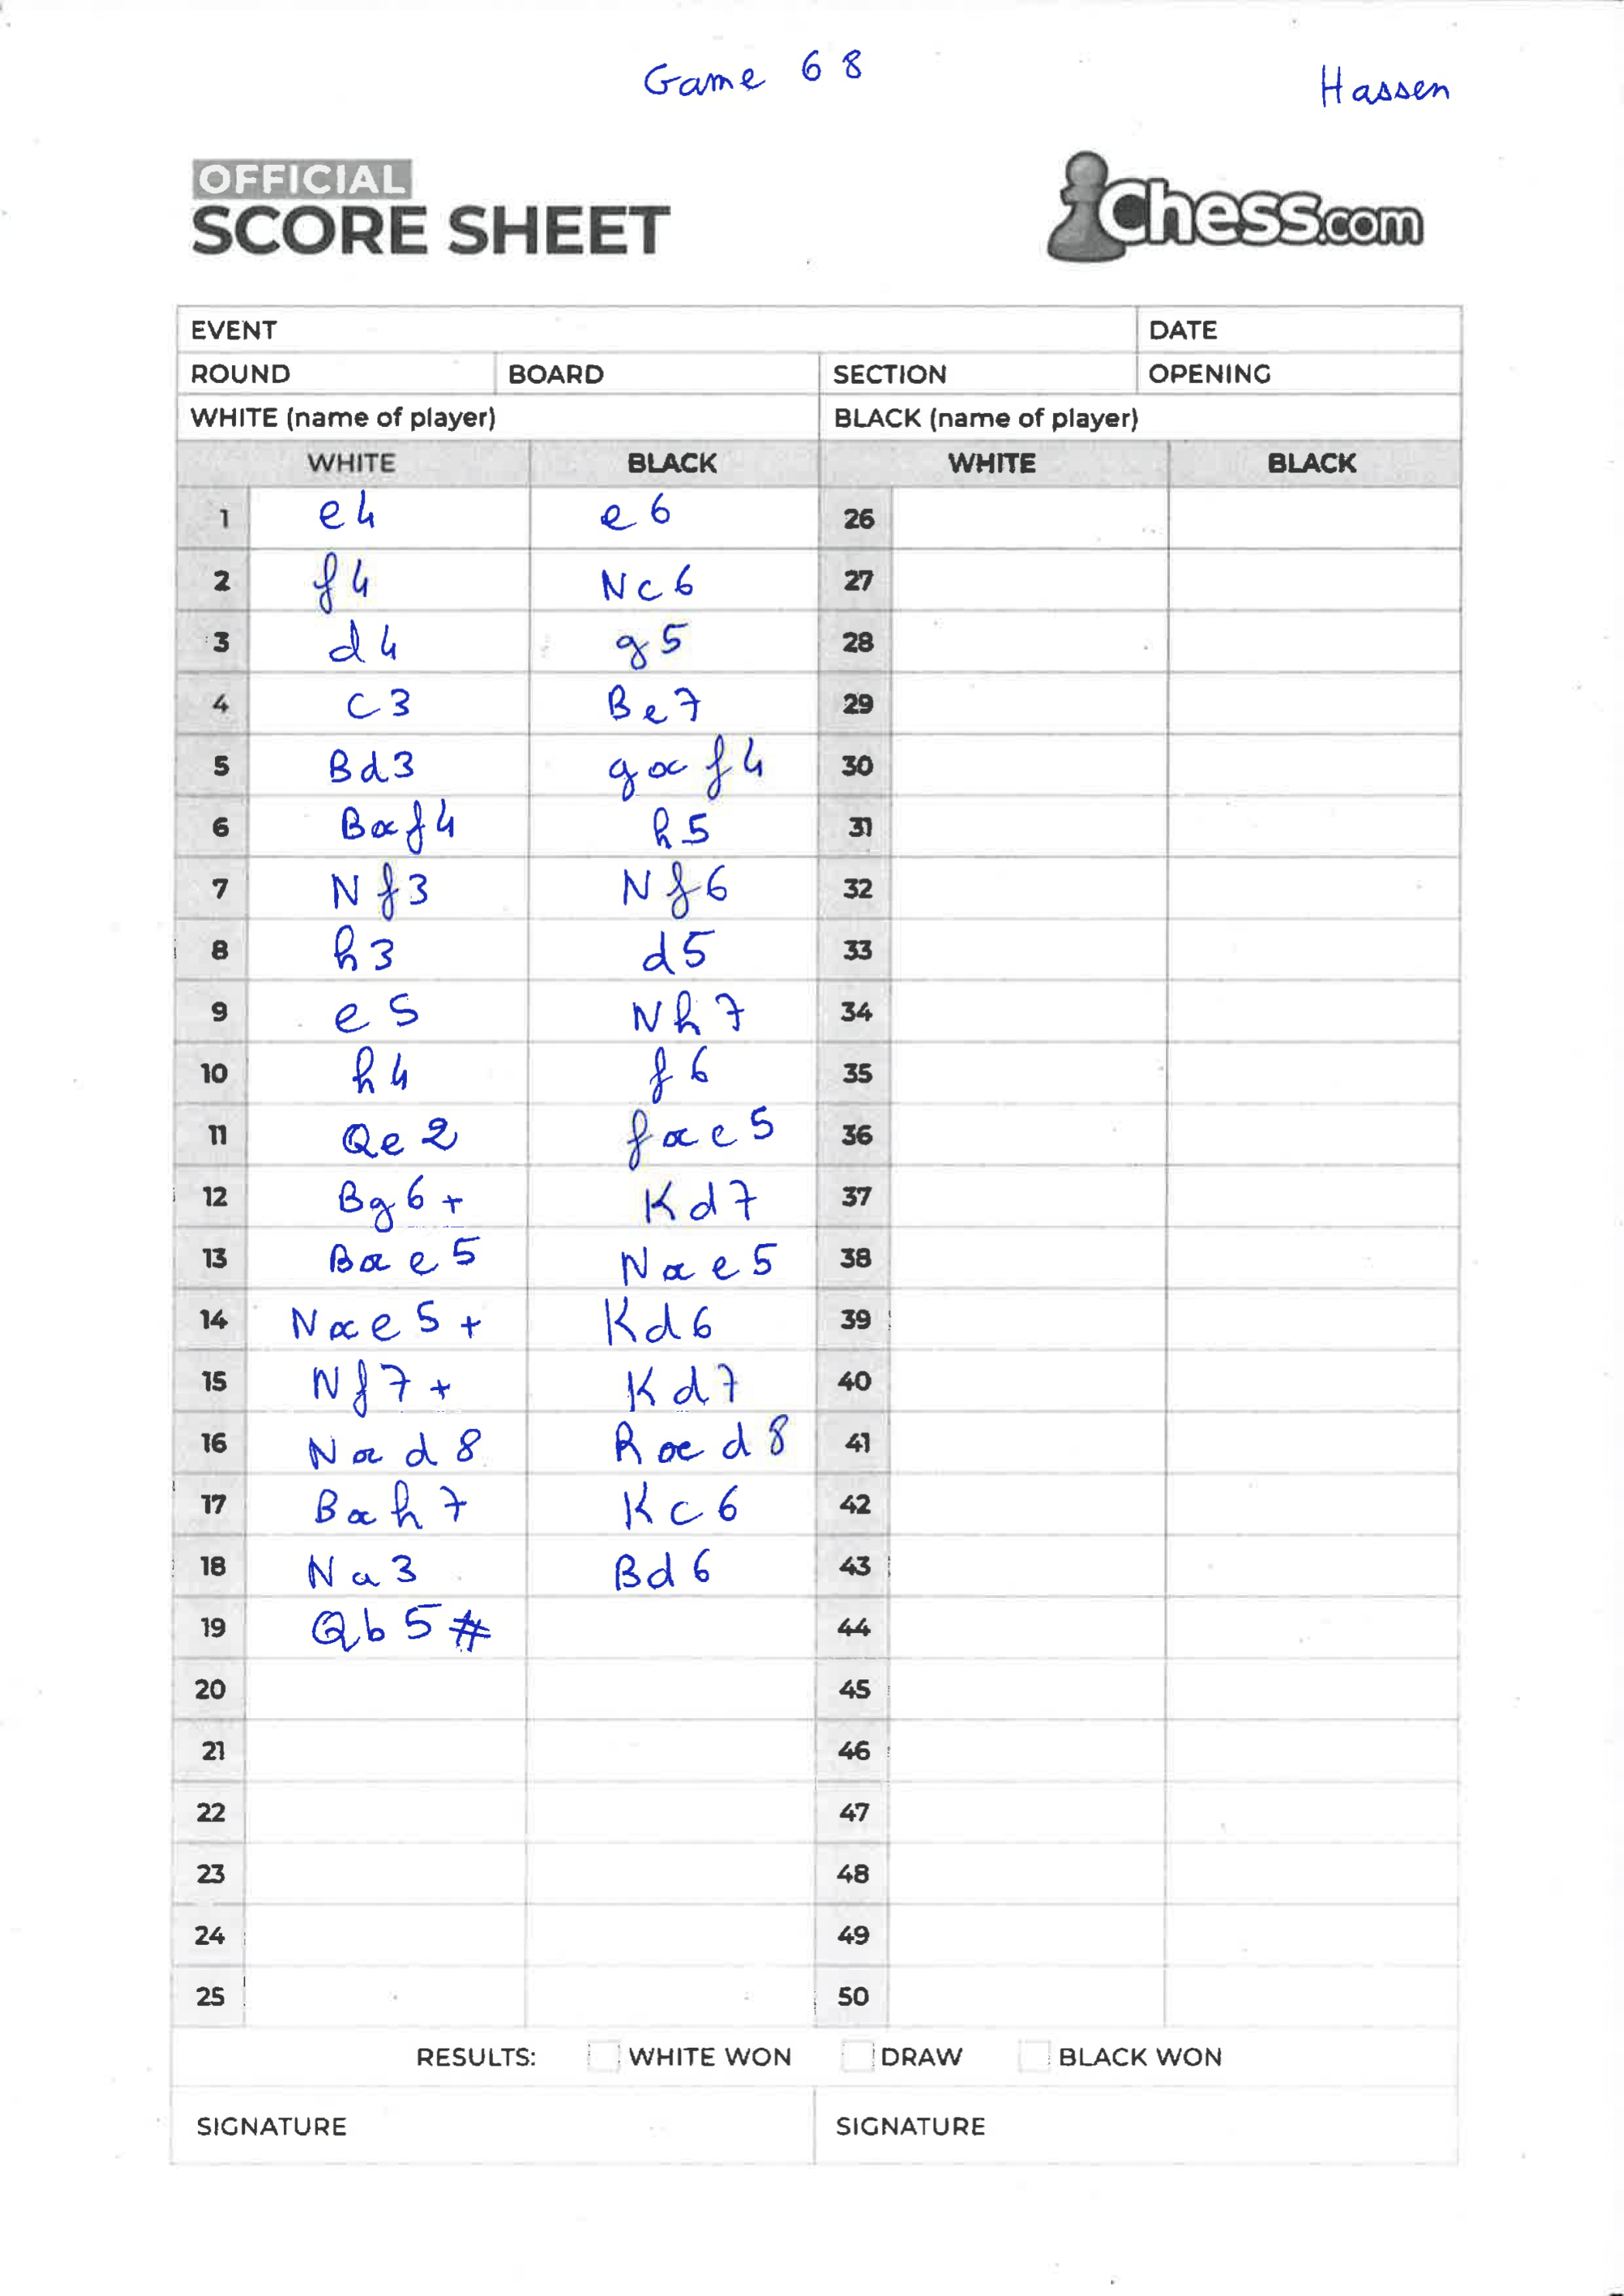 Game 68
Hassen
OFFICIAL
SCORE SHEET
Chess.com
EVENT DATE
ROUND BOARD SECTION OPENING
WHITE (name of player) BLACK (name of player)
WHITE BLACK WHITE BLACK
1 e4 e6 26
2 f4 Nc6 27
3 d4 g5 28
4 c3 Be7 29
5 Bd3 gxf4 30
6 Bxf4 h5 31
7 Nf3 Nf6 32
8 h3 d5 33
9 e5 Nh7 34
10 h4 f6 35
11 Qe2 fxe5 36
12 Bg6+ Kd7 37
13 Bxe5 Nxe5 38
14 Nxe5+ Kd6 39
15 Nf7+ Kd7 40
16 Nxd8 Rxd8 41
17 Bxh7 Kc6 42
18 Na3 Bd6 43
19 Qb5# 44
20 45
21 46
22 47
23 48
24 49
25 50
RESULTS: WHITE WON DRAW BLACK WON
SIGNATURE SIGNATURE